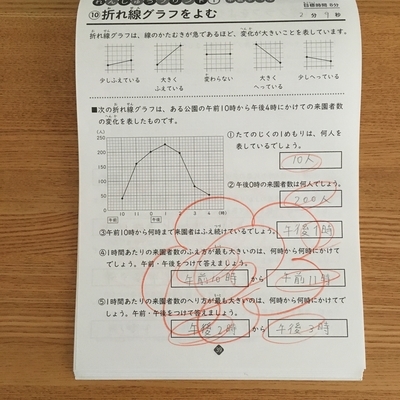 目標時間 6分
⑩折れ線グラフをよむ
2分 9秒
折れ線グラフは、線のかたむきが急であるほど、変化が大きいことを表しています。
少しふえている
大きくふえている
変わらない
大きくへっている
少しへっている
■次の折れ線グラフは、ある公園の午前10時から午後4時にかけての来園者数
の変化を表したものです。
(人)
250
200
150
100
50
0
10 11 0 1 2 3 4 (時)
午前 午後
①たてのじくの1めもりは、何人を
表しているでしょう。
10人
②午後0時の来園者数は何人でしょう。
200人
③午前10時から何時まで来園者はふえ続けているでしょう。
午後1時
④1時間あたりの来園者数のふえ方が最も大きいのは、何時から何時にかけて
でしょう。午前・午後をつけて答えましょう。
午前10時 から 午前11時
⑤1時間あたりの来園者数のへり方が最も大きいのは、何時から何時にかけてで
しょう。午前・午後をつけて答えましょう。
午後2時 から 午後3時